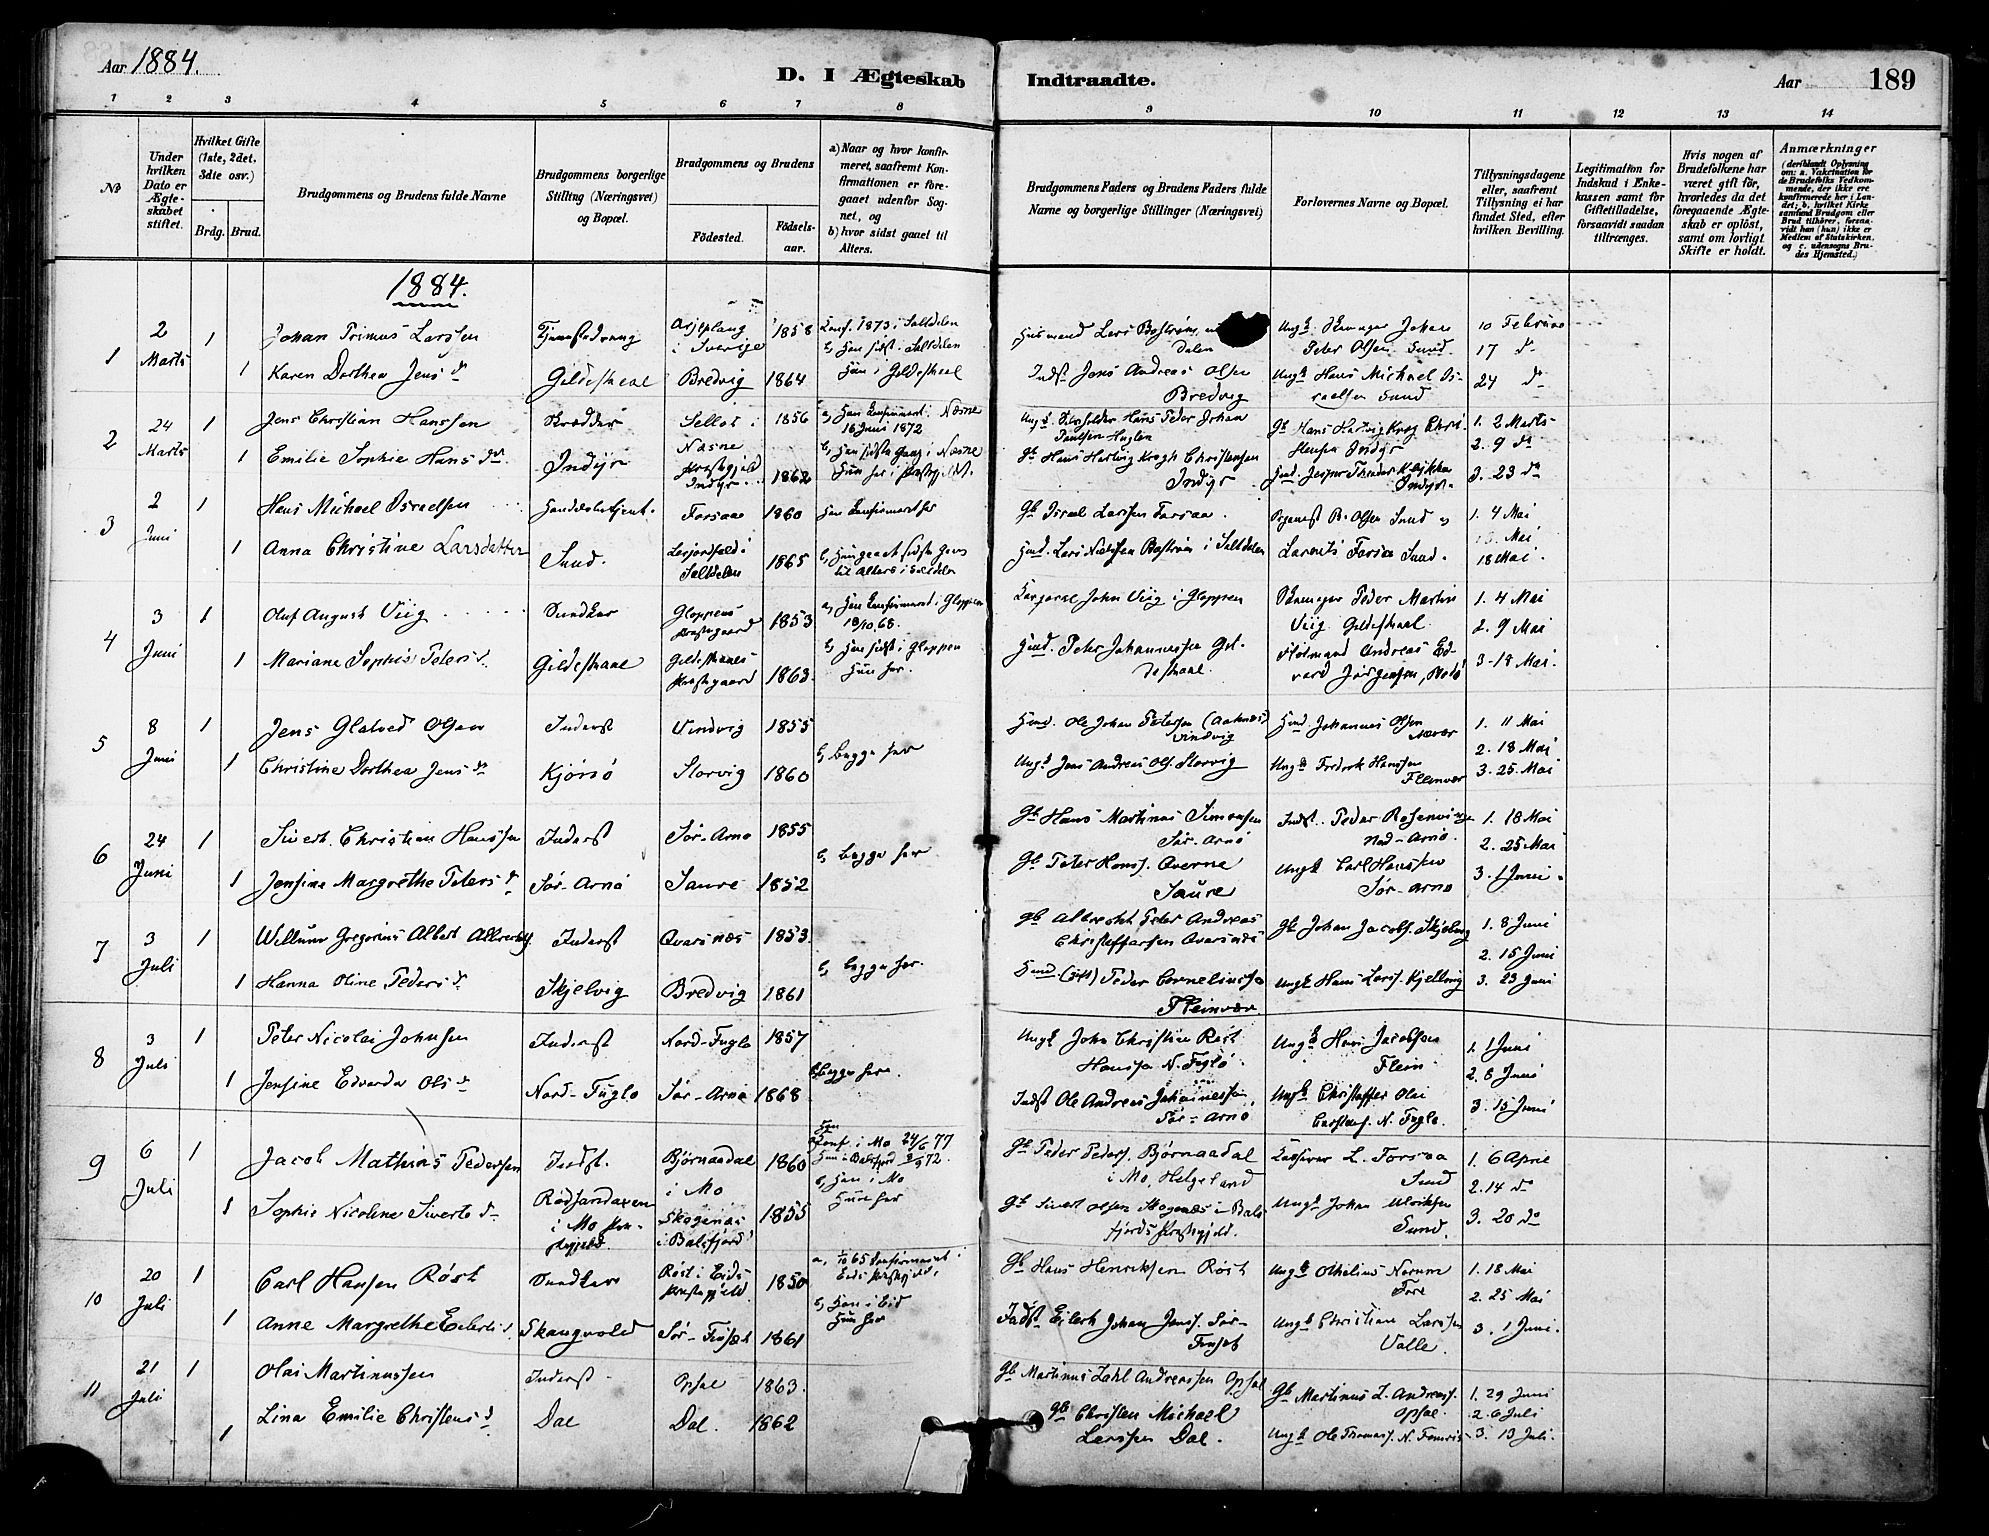 Aar 1884.
D. I Ægteskab
Indtraadte.
Aar
189
1 2 3 4 5 6 7 8 9 10 11 12 13 14
No
Under hvilken Dato er Ægteskabet stiftet.
Hvilket Gifte (1ste, 2det, 3die osv.)
Brdg. Brud.
Brudgommens og Brudens fulde Navne
Brudgommens borgerlige Stilling (Næringsvei) og Bopæl.
Brudgommens og Brudens
Fødested.
Fødselsaar.
a) Naar og hvor konfirmeret, saafremt Konfirmationen er foregaaet udenfor Sognet, og
b) hvor sidst gaaet til Alters.
Brudgommens Faders og Brudens Faders fulde Navne og borgerlige Stillinger (Næringsvei)
Forlovernes Navne og Bopæl.
Tillysningsdagene eller, saafremt Tillysning ei har fundet Sted, efter hvilken Bevilling.
Legitimation for Indskud i Enkekassen samt for Giftetilladelse, forsaavidt saadan tiltrænges.
Hvis nogen af Brudefolkene har været gift før, hvorledes da det foregaaende Ægteskab er opløst, samt om lovligt Skifte er holdt.
Anmærkninger
(deriblandt Oplysning om: a. Vakcination for de Brudefolks Vedkommende, der ikke ere konfirmerede her i Landet; b. hvilket Kirkesamfund Brudgom eller Brud tilhører, forsaavidt han (hun) ikke er Medlem af Statskirken, og c. udensogns Brudes Hjemsted.)
1884.
1
2 Marts
1
Johan Primus Larssen
Arjeplaug i Sverige
1858
Conf. 1873 i Saltdalen
b, Han sidst i Saltdalen
Husmand Lars Boström
dalen
Ungk Johan
Peter Olsen Sund.
10 Februar
17 do
1
Karen Dorthea Jensdr
Gildeskaal
Bredvig
1864
Hun i Gildeskaal
Indst Jens Andreas Olsen
Bredvig
Ungk Hans Michael Israelsen Sund
24 do
2
24 Marts
1
Jens Christian Hanssen
Skrædder
i Næsne
1856
a, Han konfirmeret i Næsne
16 Juni 1872
Hans Peder Johan
1. 2 Marts
2. 9 do
1
Emilie Sophie Hansdr.
Indyr
Præstegjeld
Indyr
1862
b, Han sidste Gang i Næsne
Hun her i Præstegjeldet.
Gb Hans Hartvig Krogh Christensen
Indyr
Gb Hans Hartvig Krog Christensen Indyr
3. 23 do
3
2 Juni
1
Hans Michael Israelsen
Handelsbetjent.
Forsaa
1860
Han konfirmert her
Gb Israel Larssen Forsaa.
Olsen Sund
1. 4 Mai
1
Anna Christine Larsdatter
Sund.
Saltdalen
1865
Hmd. Lars Nielssen Boström i Saltdalen
Lorents Forsaa Sund.
18 Mai.
4
3 Juni
1
Oluf August Viig
Gloppens Præstegaard
1853
a, Han konfirmeret i Gloppen
18/10.68.
John Viig i Gloppen
Peder Martin
Viig Gildeskaal
1. 4 Mai
2. 9 Mai
1
Mariane Sophie Petersd.
Gildeskaal
Gildeskaals Præstegaard
1863.
b, Han sidst i Gloppen
Hun her.
Hmd. Peter Johannessen Gildeskaal.
Andreas Edvard Jörgensen,
3. 18 Mai.
5
8 Juni
1
Jens Glatved Olsen
Inderst
Vindvig
1855
b, begge her
Hmd. Ole Johan Petersen
Vindvig
Hmd. Johannes Olsen
1. 11 Mai
2. 18 Mai
1
Christine Dorthea Jensdr
Kjörsö
Storvig
1860
Ungk Jens Andreas Ols. Storvig
Ungk Fredrik Hanssen
Fleinvær
3. 25. Mai
6
24 Juni
1
Sivert Christian Hanssen
Inderst
Sör-Arnö
1855
b, begge her.
Gb Hans Martinus Simonsen
Sör-Arnö
Indst. Peder Rosenvinge
Nod-Arnö.
1. 18 Mai
2. 25 Mai
1
Jensine Margrethe Petersdr
Sör-Arnö
Saure
1852
Gb Peter Hanss.
Saure
Ungk Carl Hanssen
Sör-Arnö
3. 1 Juni.
7
3 Juli
1
Willum Gregorius Albert
Inderst
Qvarsnæs
1853.
b, begge her.
Gb Albrecht Peter Andreas
Christoffersen Qvarsnæs
Gb Johan Jacobs. Skjelvig
1. 8 Juni
2. 15 Juni
1
Hanna Oline Pedersdr
Skjelvig
Bredvig
1861
Hmd Peder Corneliussen
Fleinvær.
Ungk Hans Larss. Kjelling
3. 23 Juni
8
3 Juli
1
Peter Nicolai Johnsen
Inderst
Nord-Fuglö
1857
b, begge her.
Ungk John Christian Röst
Hanssen N. Fuglö.
Ungk Hans Jacobsen
Flein
1. 1 Juni
2. 8 Juni
1
Jensine Edvarda Olsdr
Nord-Fuglö
Sör-Arnö
1868
Indst Ole Andreas Johannessen
Sör-Arnö
Ungk Christoffer Olai
N. Fuglö.
3. 15 Juni
9
6 Juli
1
Jacob Mathias Pedersen
Indst.
Bjørnaadal i Mo
1860
Han
Conf. i Mo 24/6 77
Hun i Balsfjord 72.
b, Han i Mo
Hun her
Gb Peder Peders. Bjørnaadal
i Mo, Helgeland
L. Forsaa
Sund
1. 6 April
2. 14 do
1
Sophie Nicoline Sivertsdr
i Mo
Skogenæs i Balsfjord
1855
Gb Sivert Olsen Skogenæs i Balsfjords Præstegjeld.
Ungk Johan Ulriksen
Sund.
3. 20 do
10
20 Juli
1
Carl Hansen Röst
Röst i Eids Præstegjeld
1850
a, 1/10 65 konfirmeret i
Eids Præstegjeld.
Gb Hans Henriksen Röst
Ungk Othelius Norum
Fore
1. 18 Mai
2. 25 Mai
1
Anne Margrethe Eilertsd.
Skaugvold
1861
b, Han i Eid
Hun her
Indst Eilert Johan Jenss. Sör-
Ungk Christian Larssen
Valle.
3. 1 Juni.
11
21 Juli
1
Olai Martinussen
Inderst
Opsal
1863.
Gb Martinus Zahl Andreassen Opsal
Gb Martinus Z. Andreass.
Opsal
1. 29 Juni
2. 6 Juli
1
Lina Emilie Christensd.
Dal
Dal.
1862
Gb Christen Michael
Larssen Dal.
Ungk Ole Thomass. N.
3. 13 Juli.